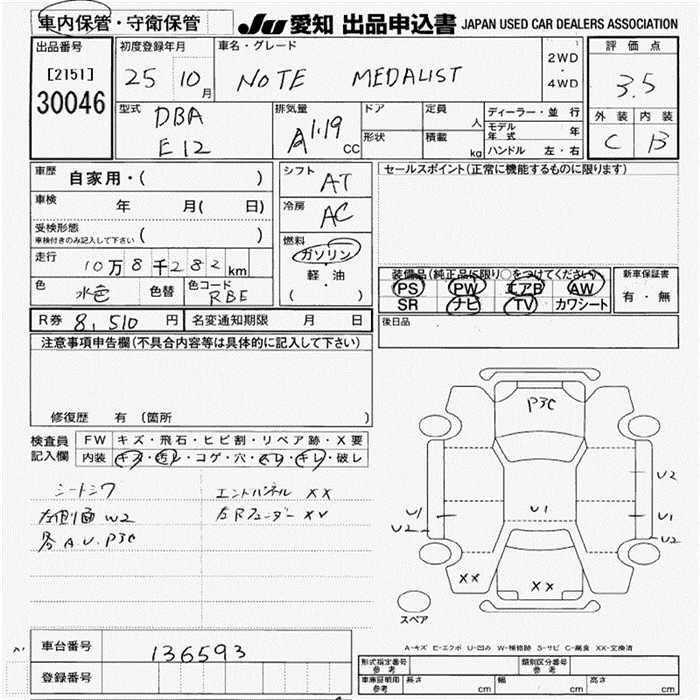 車内保管・守衛保管 JU 愛知 出品申込書 JAPAN USED CAR DEALERS ASSOCIATION
出品番号 初度登録年月 車名・グレード 2WD・4WD 評価点
[2151] 25 10月 NOTE MEDALIST 3.5
30046
型式 DBA E12 排気量 A 1.19 CC ドア 定員 人 ディーラー・並行 外装 内装
形状 積載 kg モデル年式 年 C B
ハンドル 左・右
車歴 自家用・( ) シフト AT セールスポイント(正常に機能するものに限ります)
車検 年 月( 日) 冷房 AC
受検形態 車検付きのみ記入して下さい ( )
燃料 ガソリン
走行 10万8千282km 軽・油
( )
装備品(純正品に限り○をつけてください) 新車保証書
PS PW エアB AW 有・無
SR ナビ TV カワシート
色 水色 色替 色コード RBE
R券 8,510円 名変通知期限 月 日 後日品
注意事項申告欄(不具合内容等は具体的に記入して下さい)
修復歴 有 (箇所 )
検査員 FW キズ・飛石・ヒビ割・リペア跡・X要
記入欄 内装 キズ・汚レ・コゲ・穴・スレ・キレ・破レ
シートシワ エンドパネル XX
左側面 W2 左Rフェンダー XX
各A.U.P3C
P3C
U2
U1 U1 U1
U2 U2
XX XX
スペア
A-キズ E-エクボ U-凹み W-補修跡 S-サビ C-腐食 XX-交換済
車台番号 136593
登録番号
型式指定番号 参考 類別区分番号 参考
車庫証明用 参考 長さ cm 幅 cm 高さ cm